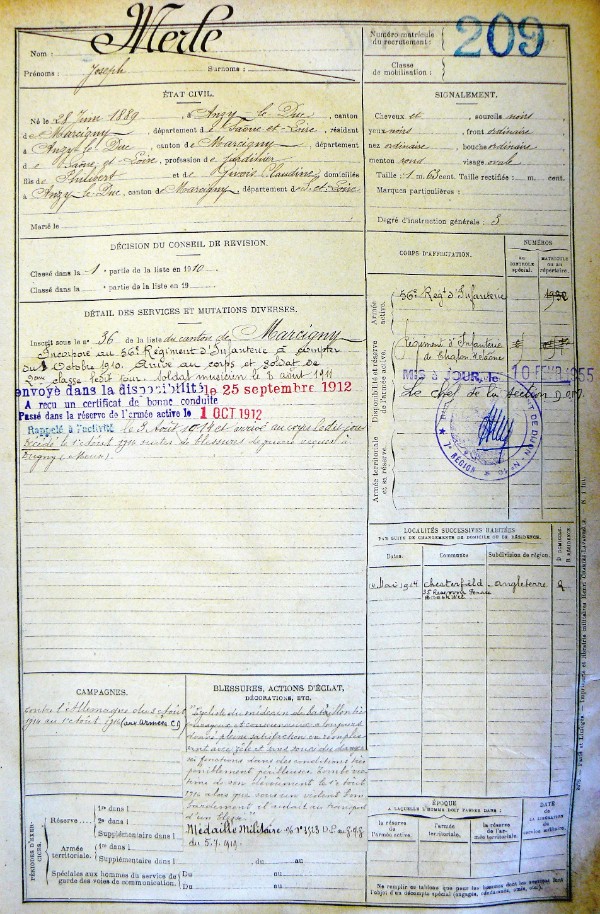 Nom : Merle
Prénoms : Joseph Surnoms :
Numéro matricule
du recrutement: 209
Classe
de mobilisation :
ÉTAT CIVIL.
Né le 28 Juin 1889, à Anzy le Duc, canton
de Marcigny, département de Saône et Loire, résident
à Anzy le Duc, canton de Marcigny, département
de Saône et Loire, profession de
fils de Philibert et de Claudine, domiciliés
à Anzy le Duc, canton de Marcigny, département de S. et Loire
Marié le
SIGNALEMENT.
Cheveux et sourcils noirs
yeux noirs, front ordinaire
nez ordinaire, bouche ordinaire
menton rond, visage ovale
Taille : 1 m. 63 cent. Taille rectifiée : m. cent.
Marques particulières :
Degré d'instruction générale : 3
DÉCISION DU CONSEIL DE REVISION.
Classé dans la 1e partie de la liste en 1910.
Classé dans la partie de la liste en 19
CORPS D'AFFECTATION.
NUMÉROS
AU CONTROLE spécial.
MATRICULE ou au répertoire.
Armée active.
56e Régt d'Infanterie
Disponibilité et réserve de l'armée active.
Régiment d'Infanterie
de Chalon s/ Saône
MIS à JOUR, le 10 FEVR 1955
Le chef de la section
Armée territoriale et sa réserve.
7e RÉGION
DÉTAIL DES SERVICES ET MUTATIONS DIVERSES.
Inscrit sous le n° 36 de la liste du canton de Marcigny
Incorporé au 56e Régiment d'Infanterie à compter
du Octobre 1910. Arrivé au corps et soldat de
2ème classe ledit jour. Soldat musicien le 3 août 1911
envoyé dans la disponibilité le 25 septembre 1912
A reçu un certificat de bonne conduite
Passé dans la réserve de l'armée active le 1 OCT. 1912
Rappelé à l'activité le 3 Août 1914 et arrivé au corps ledit jour
Décédé le 1914 suites de blessures de guerre reçues à
(Meuse).
LOCALITÉS SUCCESSIVES HABITÉES
PAR SUITE DE CHANGEMENTS DE DOMICILE OU DE RÉSIDENCE.
Dates. Communes Subdivision de région. D. DOMICILE. R. RÉSIDENCE.
Mai 1914 Chesterfield Angleterre R
CAMPAGNES.
contre l'Allemagne du 3 Août
1914 au 1914 (aux armées)
BLESSURES, ACTIONS D'ÉCLAT,
DÉCORATIONS, ETC.
du médecin de bataillon très
et consciencieux a toujours
donné pleine satisfaction en remplis-
sant avec zèle et sans souci des dangers
ses fonctions dans des conditions très
périlleuses. Tombé vic-
time de son dévouement le
1914 alors que sous un violent bom-
bardement il aidait au transport
d'un blessé"
Médaille Militaire
du 5.7.1919.
PÉRIODES D'EXERCICES.
Réserve 1re dans l
2e dans l
Supplémentaire dans l
Armée territoriale. 1re dans l
Supplémentaire dans l , du au
Spéciales aux hommes du service de Du au
garde des voies de communication. Du au
ÉPOQUE
A LAQUELLE L'HOMME DOIT PASSER DANS :
la réserve de l'armée active.
l'armée territoriale.
la réserve de l'armée territoriale.
DATE
DE LA LIBÉRATION DU service militaire.
Ne remplir ce tableau que pour les hommes dont les services font
l'objet d'un décompte spécial (engagés, omis, etc.).